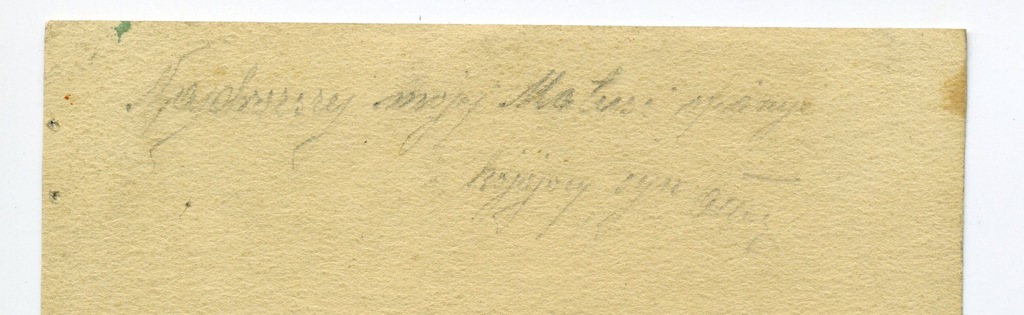 Najdroższej mojej Matusi ofiaruje
kochający syn